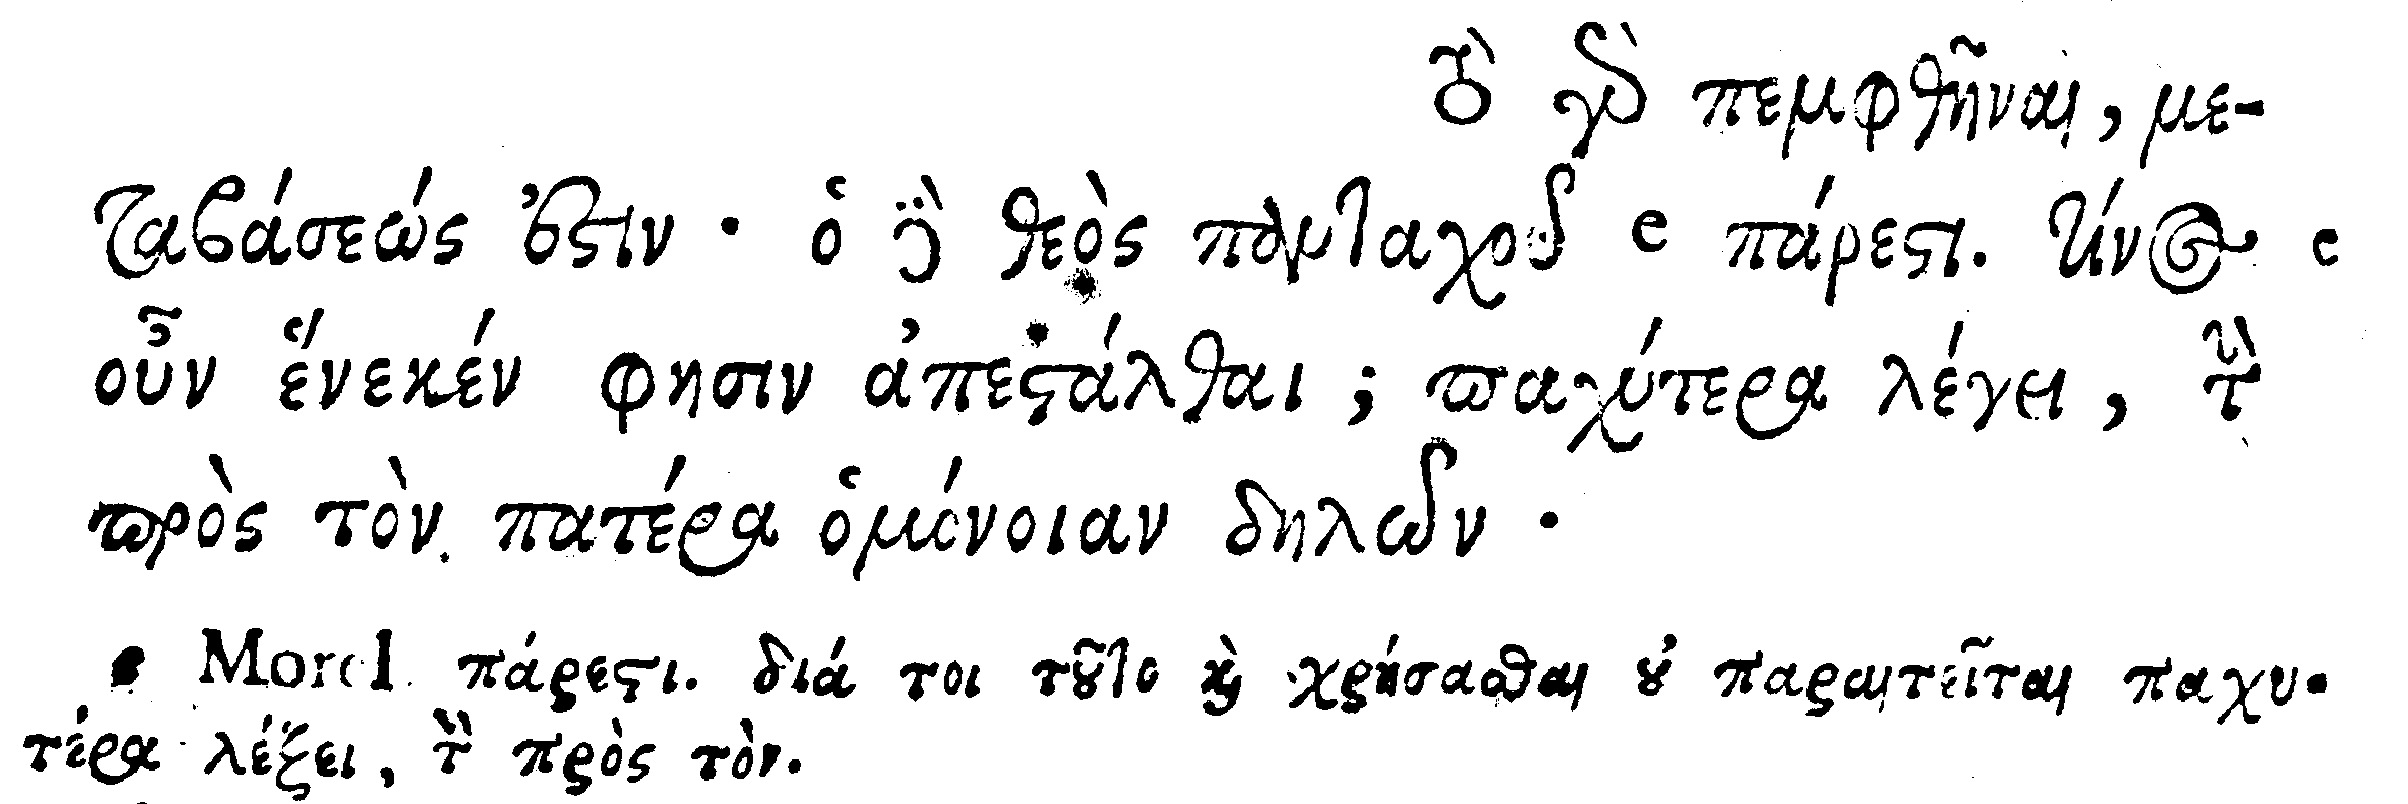 τὸ γὰρ πεμφθῆναι, με-
ταβάσεώς ἐστιν · ὁ δὲ θεὸς πανταχοῦ e πάρεστι. τίνος e
οὖν ἕνεκέν φησιν ἀπεστάλθαι ; παχύτερα λέγει, τὴν
πρὸς τὸν πατέρα ὁμόνοιαν δηλῶν ·
e Morel. πάρεστι. διά τοι τοῦτο καὶ χρήσασθαι οὐ παραιτεῖται παχυ-
τέρα λέξει, τὴν πρὸς τὸν.